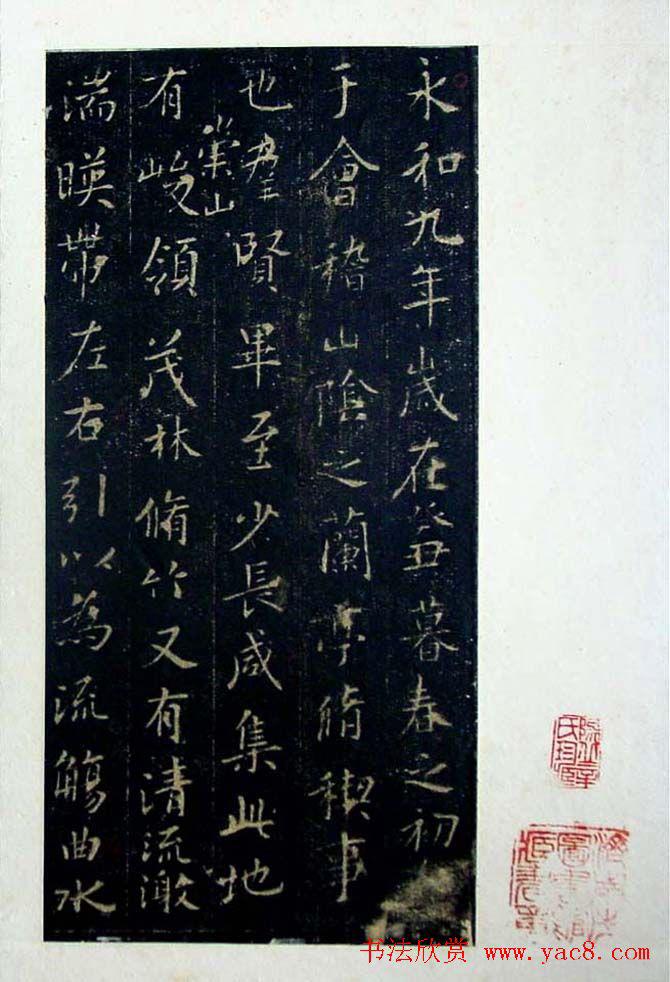 永和九年歲在癸丑暮春之初
于會稽山陰之蘭亭脩稧事
也羣賢畢至少長咸集此地
有崇山峻領茂林脩竹又有清流激
湍暎帶左右引以為流觴曲水
书法欣赏 www.yac8.com